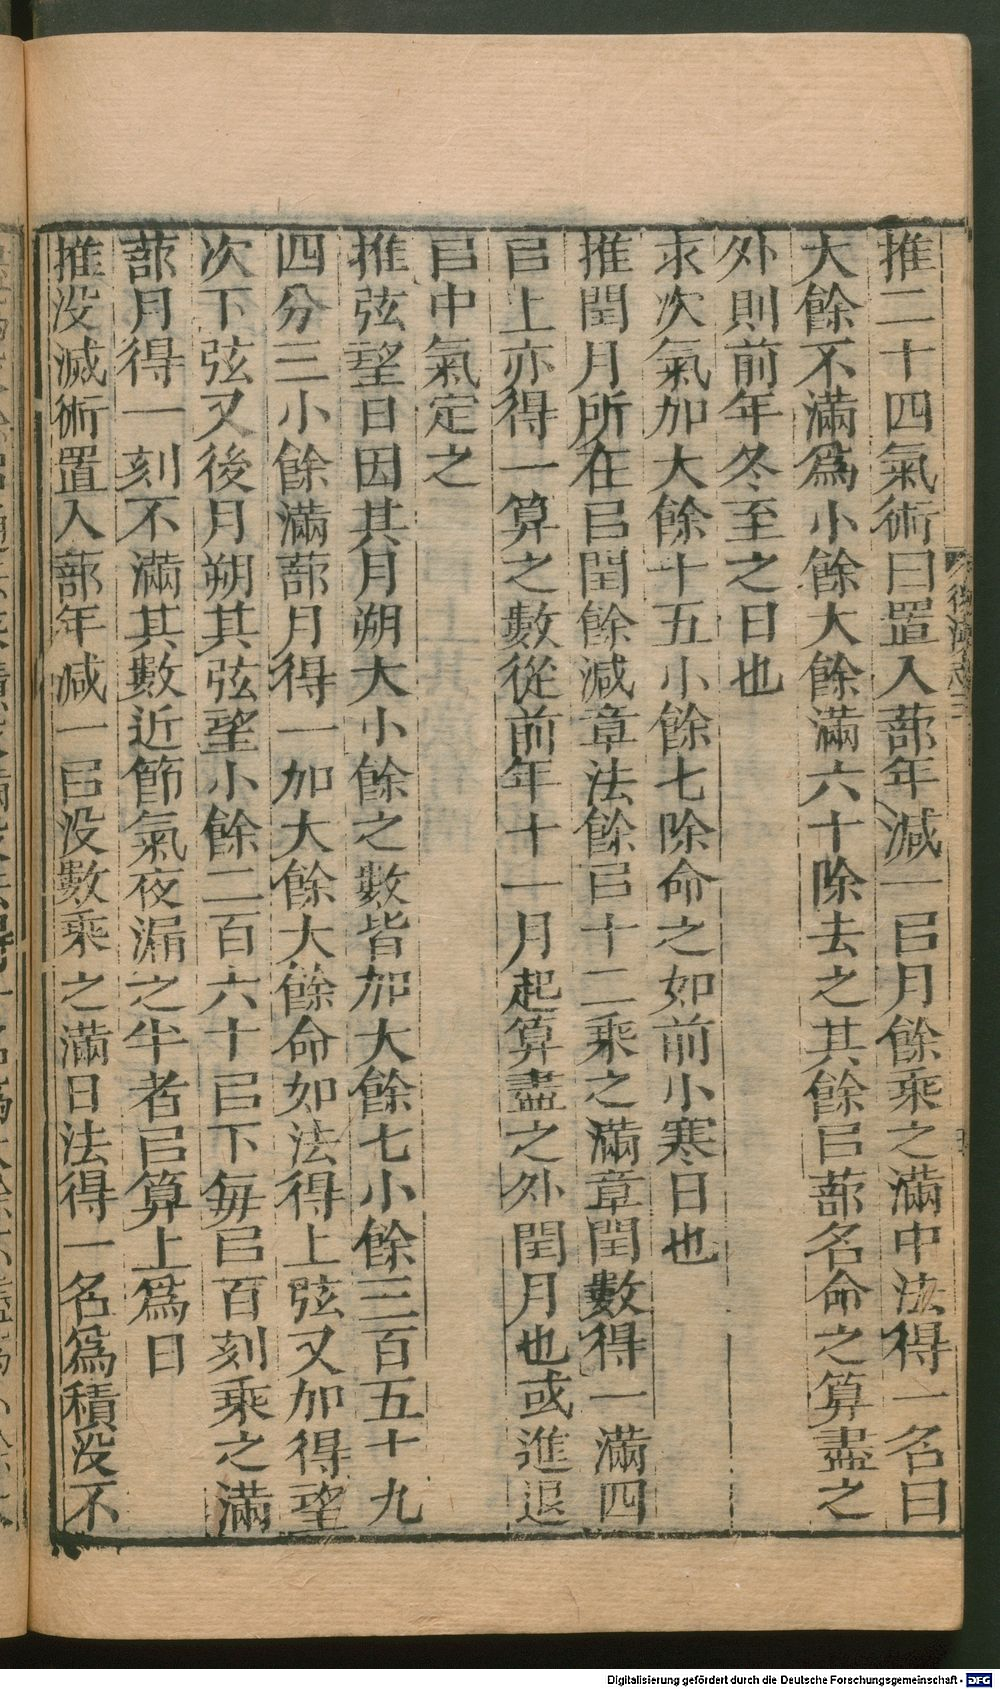 推二十四氣術曰置入蔀年減一㠯月餘乘之滿中法得一名曰
大餘不滿爲小餘大餘滿六十除去之其餘㠯蔀名命之算盡之
外則前年冬至之日也
求次氣加大餘十五小餘七除命之如前小寒日也
推閏月所在㠯閏餘減章法餘㠯十二乘之滿章閏數得一滿四
㠯上亦得一算之數從前年十一月起算盡之外閏月也或進退
㠯中氣定之
推弦望日因其月朔大小餘之數皆加大餘七小餘三百五十九
四分三小餘滿蔀月得一加大餘大餘命如法得上弦又加得望
次下弦又後月朔其弦望小餘二百六十㠯下每㠯百刻乘之滿
蔀月得一刻不滿其數近節氣夜漏之半者㠯算上爲日
推没滅術置入蔀年減一㠯没數乘之滿日法得一名爲積没不
Digitalisierung gefördert durch die Deutsche Forschungsgemeinschaft - DFG